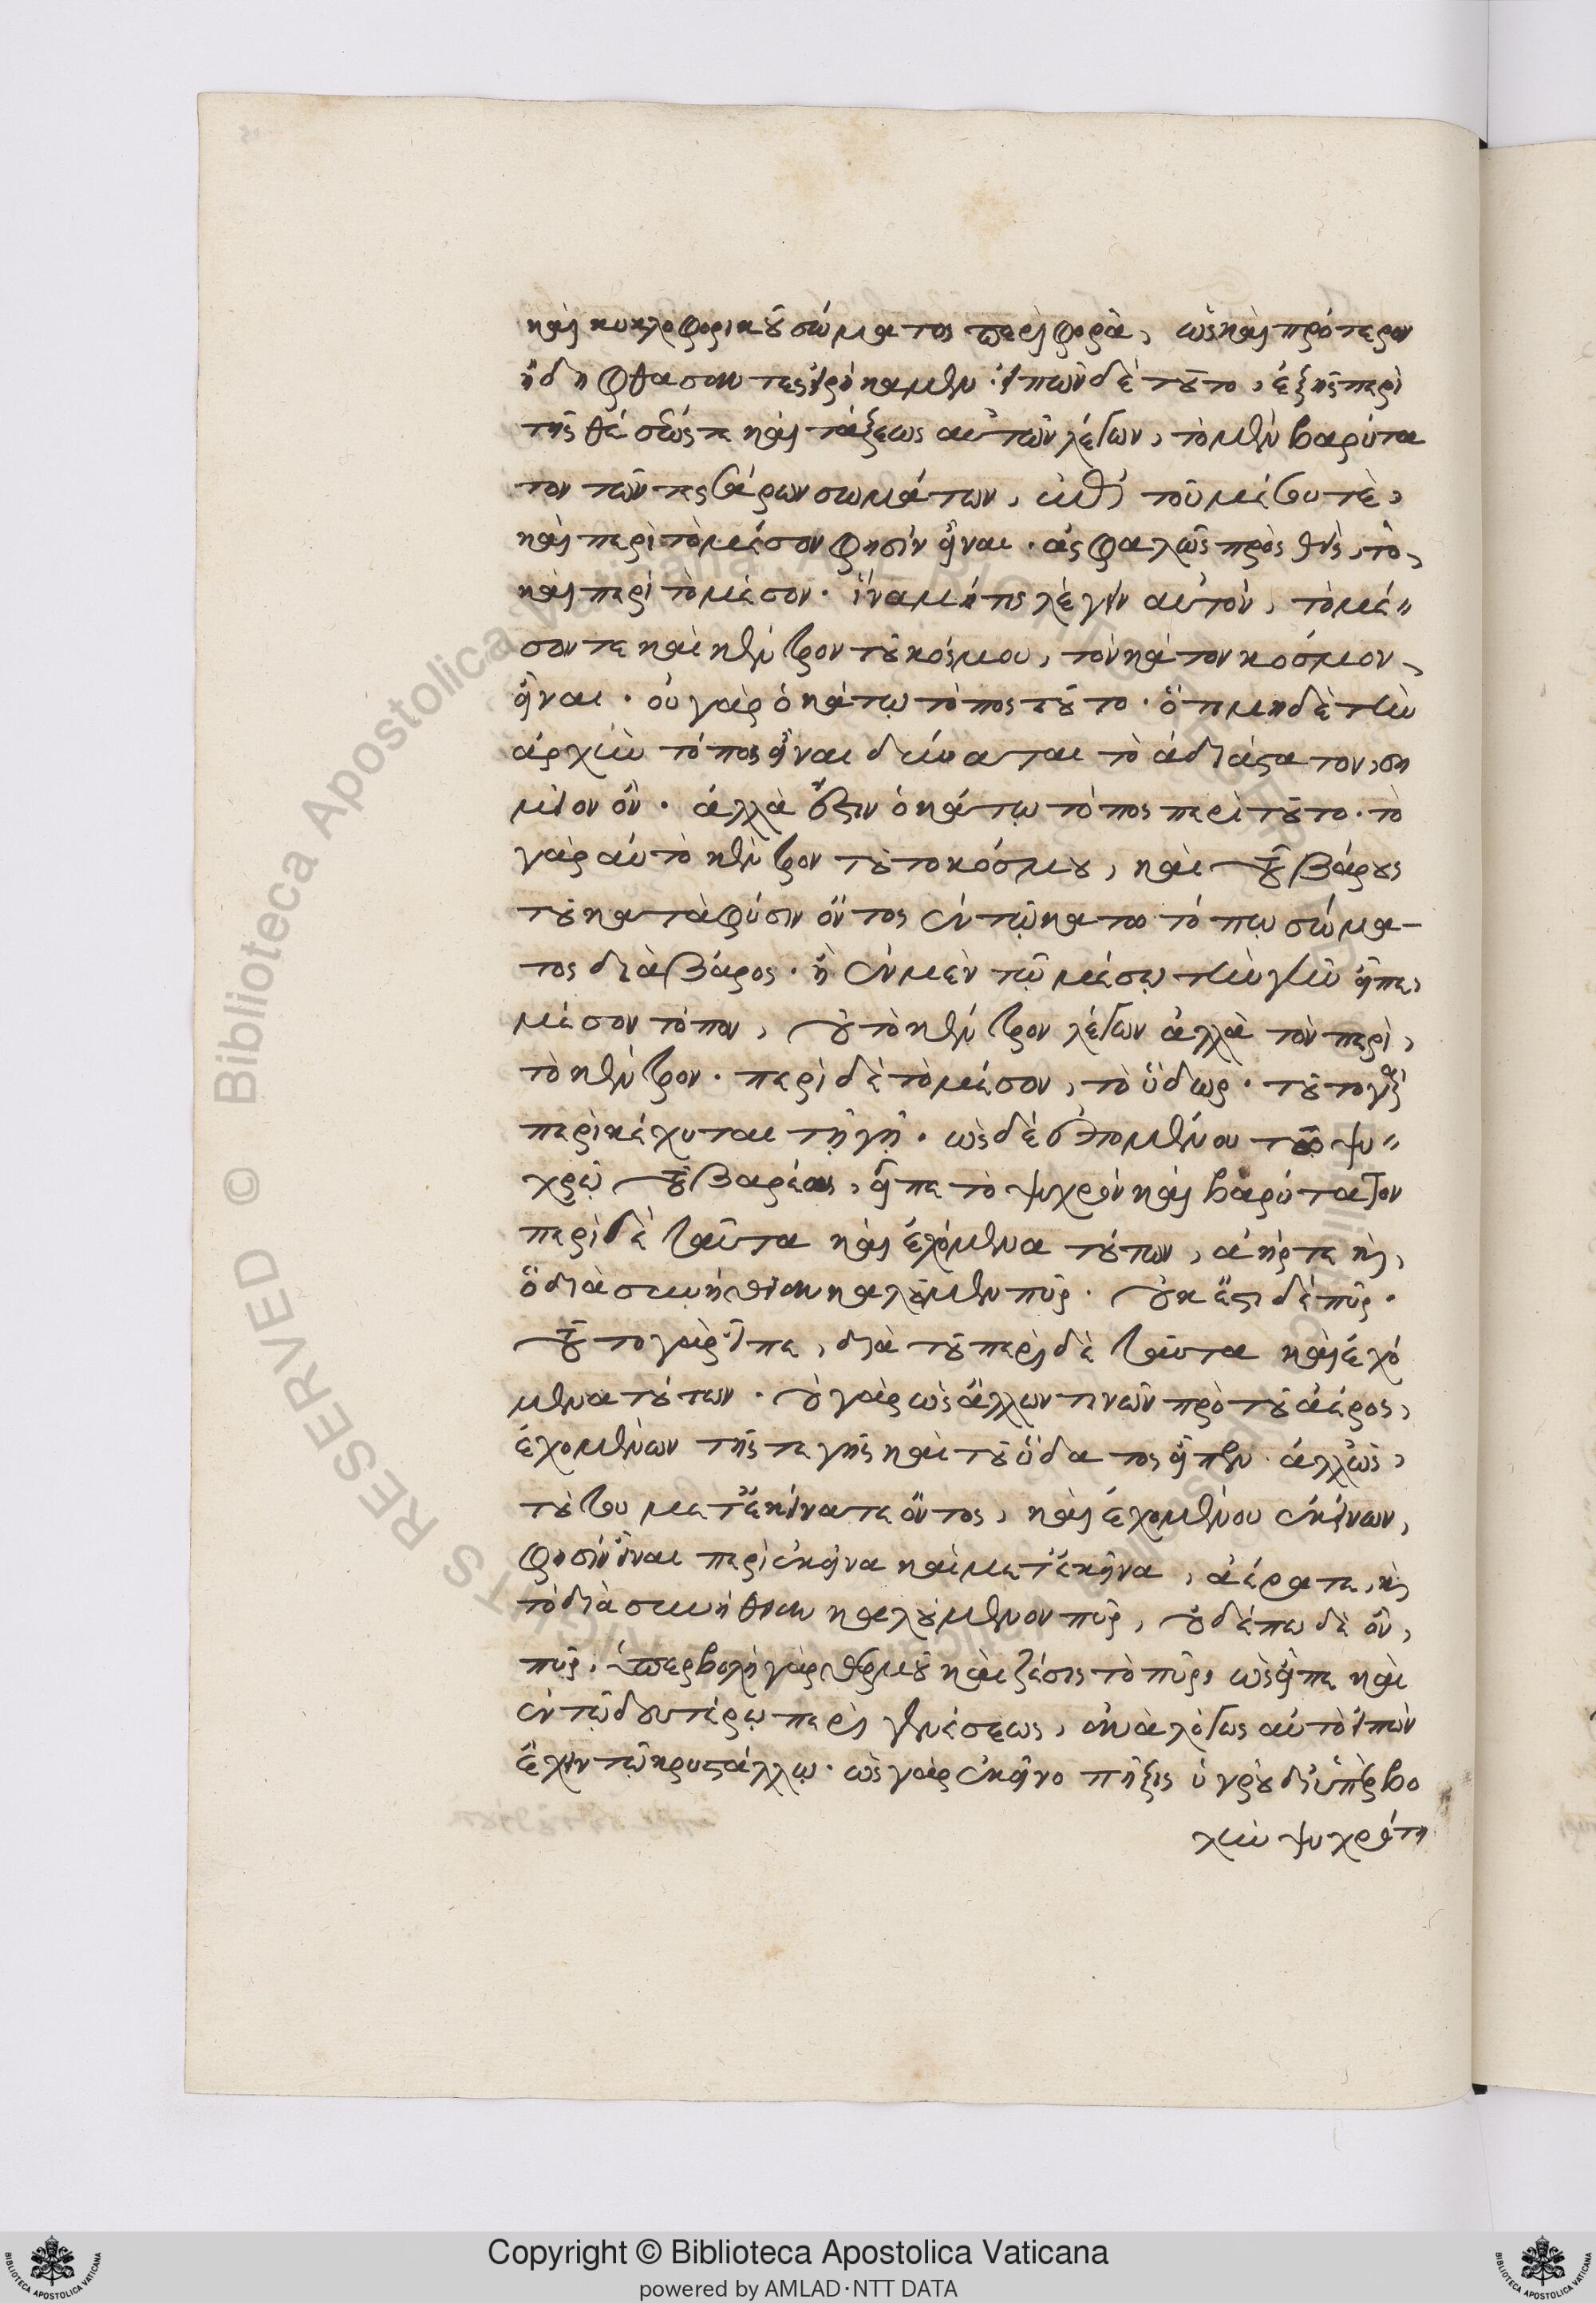 καὶ κυκλοφορικοῦ σώματος περιφορὰ, ὡς καὶ πρότερον
ἤδη φθάσαντες εἰρήκαμεν. εἰπὼν δὲ τοῦτο, ἑξῆς περὶ
τῆς θέσεώς τε καὶ τάξεως αὐτῶν λέγων, τὸ μὲν βαρύτα
τον τῶν τεσσάρων σωμάτων, τοῦ μέσου τὲ,
καὶ περὶ τὸ μέσον φησὶν εἶναι. ἀσφαλῶς προσθεὶς, τὸ,
καὶ περὶ τὸ μέσον. ἵνα μή τις λέγειν αὐτὸν, τὸ μέ"
σον τε καὶ κέντρον τοῦ κόσμου, τὸν κάτον κόσμον,
εἶναι. οὐ γὰρ ὁ κάτω τόπος τοῦτο. ὅτι μηδὲ τὴν
ἀρχὴν τόπος εἶναι δύναται τὸ ἀδιάστατον, ση
μεῖον ὂν. ἀλλὰ ἔστιν ὁ κάτω τόπος περὶ τοῦτο. τὸ
γὰρ αὐτὸ κέντρον τοῦτο κόσμου, καὶ τοῦ βάρους
τοῦ κατὰ φύσιν ὄντος ἐν τῷ κάτω τόπῳ σώμα-
τος διὰ βάρος. ἢ ἐν μὲν τῷ μέσῳ τὴν γῆν εἶπε,
μέσον τόπον, οὐ τὸ κέντρον λέγων ἀλλὰ τὸν περὶ,
τὸ κέντρον. περὶ δὲ τὸ μέσον, τὸ ὕδωρ. τοῦτο γὰρ
περικέχυται τῇ γῇ. ὡς δὲ ἑπομένου τῷ ψυ"
χρῷ τοῦ βαρέος, εἶπε τὸ ψυχρὸν καὶ βαρύτατον
περὶ δὲ ταῦτα καὶ ἐχόμενα τούτων, ἀήρ τε καὶ,
ὃ διὰ συνήθειαν καλοῦμεν πῦρ. οὐκ ἔστι δὲ πῦρ.
τοῦτο γὰρ εἶπε, διὰ τοῦ περὶ δὲ ταῦτα καὶ ἐχό
μενα τούτων. οὐ γὰρ ὡς ἄλλων τινῶν πρὸ τοῦ ἀέρος,
ἐχομένων τῆς τε γῆς καὶ τοῦ ὕδατος εἶπεν. ἀλλ' ὡς,
τούτου μετ' ἐκεῖνά τε ὄντος, καὶ ἐχομένου ἐκείνων,
φησὶν εἶναι περὶ ἐκεῖνα καὶ μετ' ἐκεῖνα, ἀέρα τε, καὶ
τὸ διὰ συνήθειαν καλούμενον πῦρ, οὐδέπω δὲ ὂν,
πῦρ. ὑπερβολὴ γὰρ θερμοῦ καὶ ζέσις τὸ πῦρ, ὡς εἶπε καὶ
ἐν τῷ δευτέρῳ περὶ γενέσεως, ἀναλόγως αὐτὸ εἰπὼν
ἔχειν τῷ κρυστάλλῳ. ὡς γὰρ ἐκεῖνο πῆξις ὑγροῦ δι' ὑπερβο
λὴν ψυχρότη
Copyright © Biblioteca Apostolica Vaticana
powered by AMLAD·NTT DATA